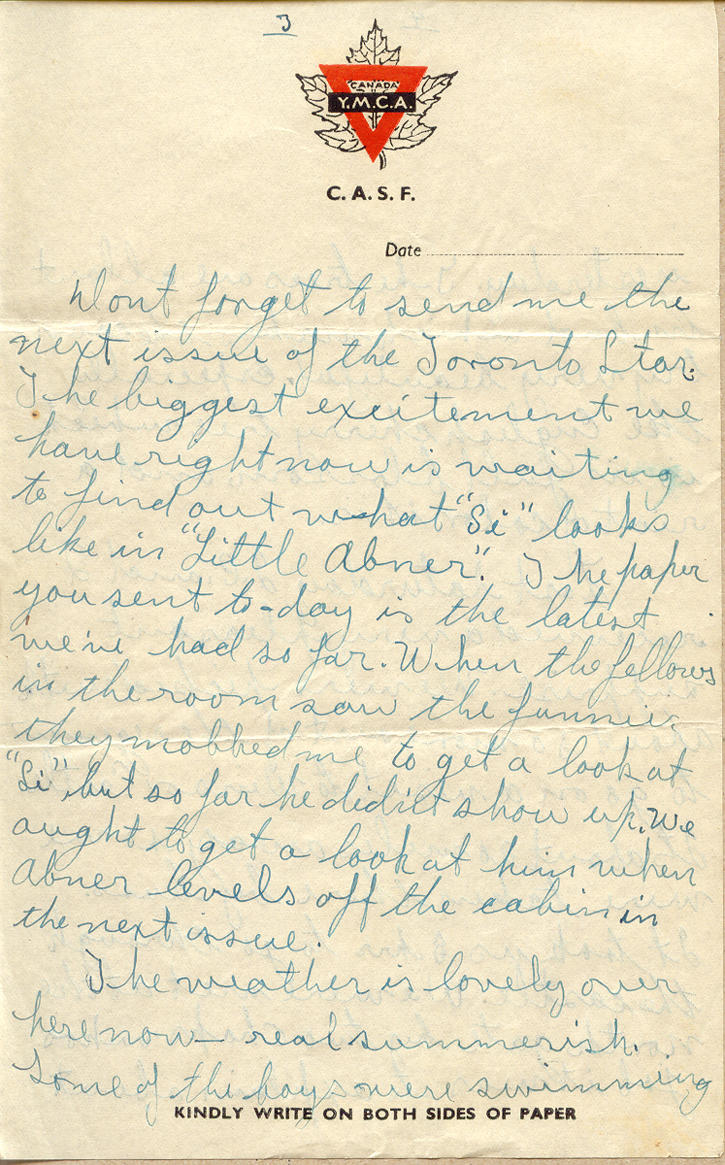 3
CANADA
Y.M.C.A.
C. A. S. F.
Date
Dont forget to send me the
next issue of the Toronto Star.
The biggest excitement we
have right now is waiting
to find out what "Si" looks
like in "Little Abner". The paper
you sent to-day is the latest
we've had so far. When the fellows
in the room saw the funnies
they mobbed me to get a look at
"Si", but so far he didn't show up. We
aught to get a look at him when
Abner levels off the cabin in
the next issue.
The weather is lovely over
here now - real summerish.
Some of the boys were swimming
KINDLY WRITE ON BOTH SIDES OF PAPER